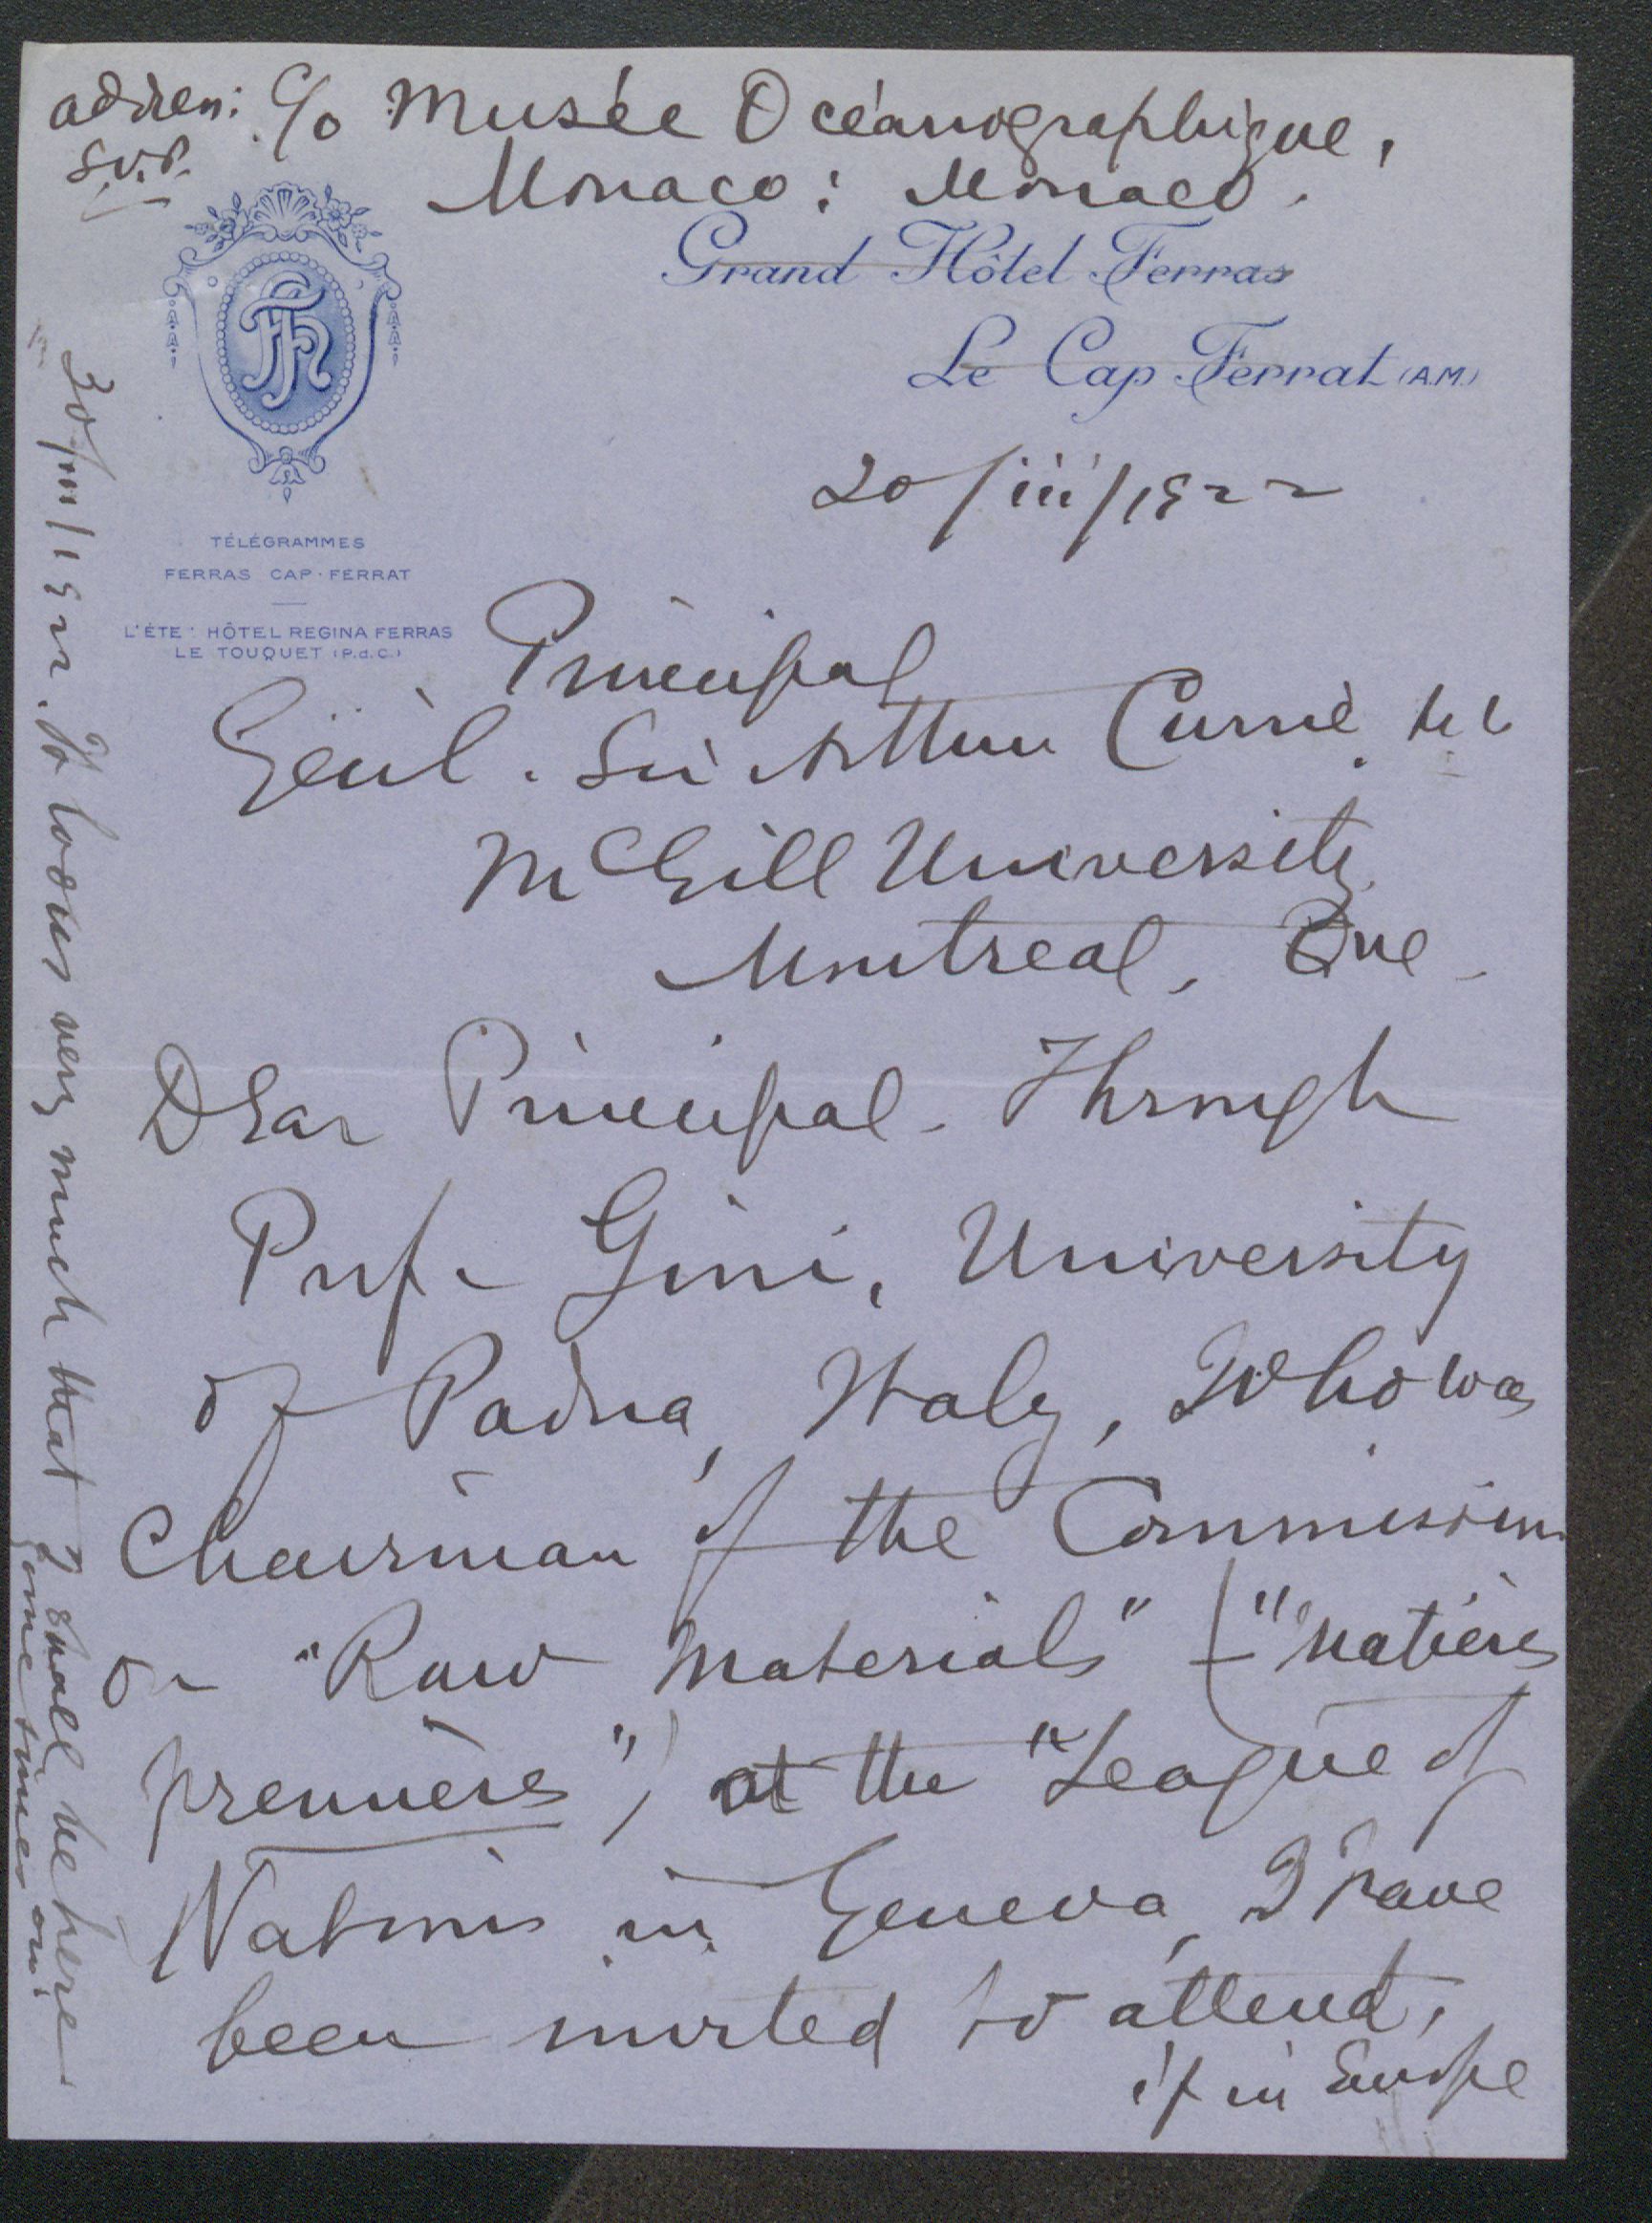 adress: c/o Musée Océanographique,
s.v.p.
Monaco: Monaco.
Grand Hôtel Ferras
Le Cap Ferrat (A.M.)
20/iii/1922
TÉLÉGRAMMES
FERRAS CAP-FERRAT
L'ÉTÉ: HÔTEL REGINA FERRAS
LE TOUQUET (P.d.C.)
Principal
Gen'l. Sir Arthur Currie
McGill University
Montreal, Que.
Dear Principal - Through
Prof. Gini, University
of Padua, Italy, who was
Chairman of the Commission
on "Raw Materials" - ("matières
premières") at the "League of
Nations in Geneva, I have
been invited to attend,
if in Europe
30/iii/1922. It looks very much that I shall be here
some times on.